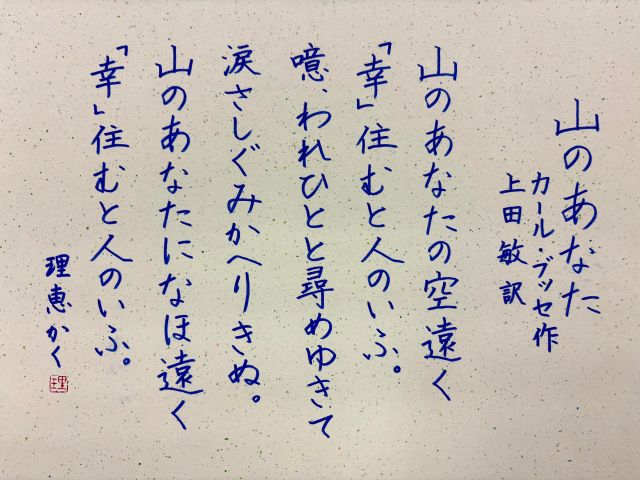 山のあなた
カール・ブッセ作
上田敏訳
山のあなたの空遠く
「幸」住むと人のいふ。
噫、われひとと尋めゆきて
涙さしぐみかへりきぬ。
山のあなたになほ遠く
「幸」住むと人のいふ。
理恵かく
理